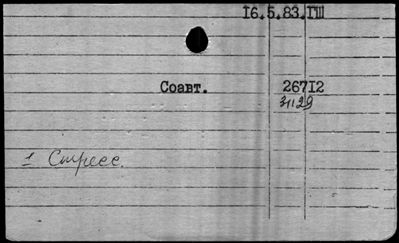 16.5.83.ПШ
Соавт. 26712
31129
1 Стресс.